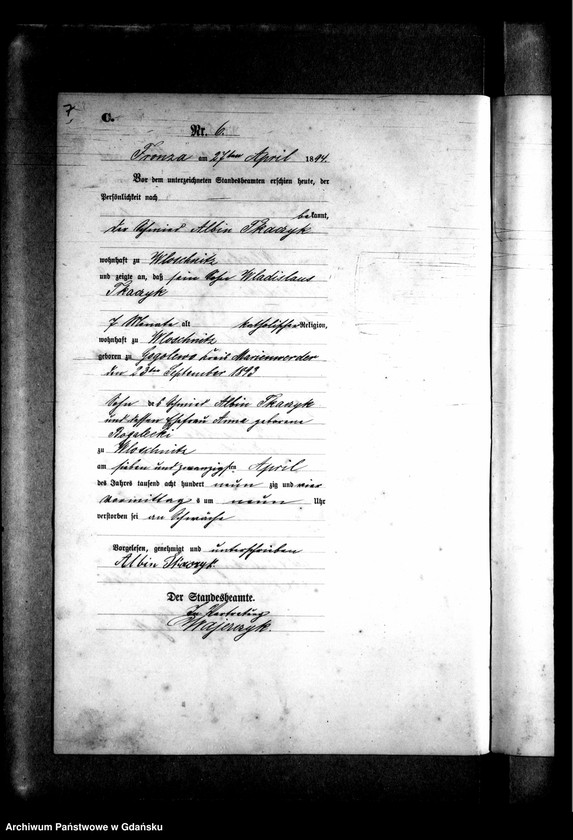 7.
C.
Nr. 6.
Fronza am 27ten April 1894.
Vor dem unterzeichneten Standesbeamten erschien heute, der
Persönlichkeit nach
bekannt,
der Schmied Albin Tkaczyk
wohnhaft zu Wloschnitz
und zeigte an, daß sein Sohn Wladislaus
Tkaczyk
7 Monate alt katholischer Religion,
wohnhaft zu Wloschnitz
geboren zu Gogolewo Kreis Marienwerder
den 23ten September 1893
Sohn des Schmied Albin Tkaczyk
und dessen Ehefrau Anna geborene
Rogalecki
zu Wloschnitz
am sieben und zwanzigsten April
des Jahrs tausend acht hundert neun zig und vier
vormittags um neun Uhr
verstorben sei an Schwäche
Vorgelesen, genehmigt und unterschrieben
Albin Tkaczyk.
Der Standesbeamte.
In Vertretung
Majerczyk.
Archiwum Państwowe w Gdańsku